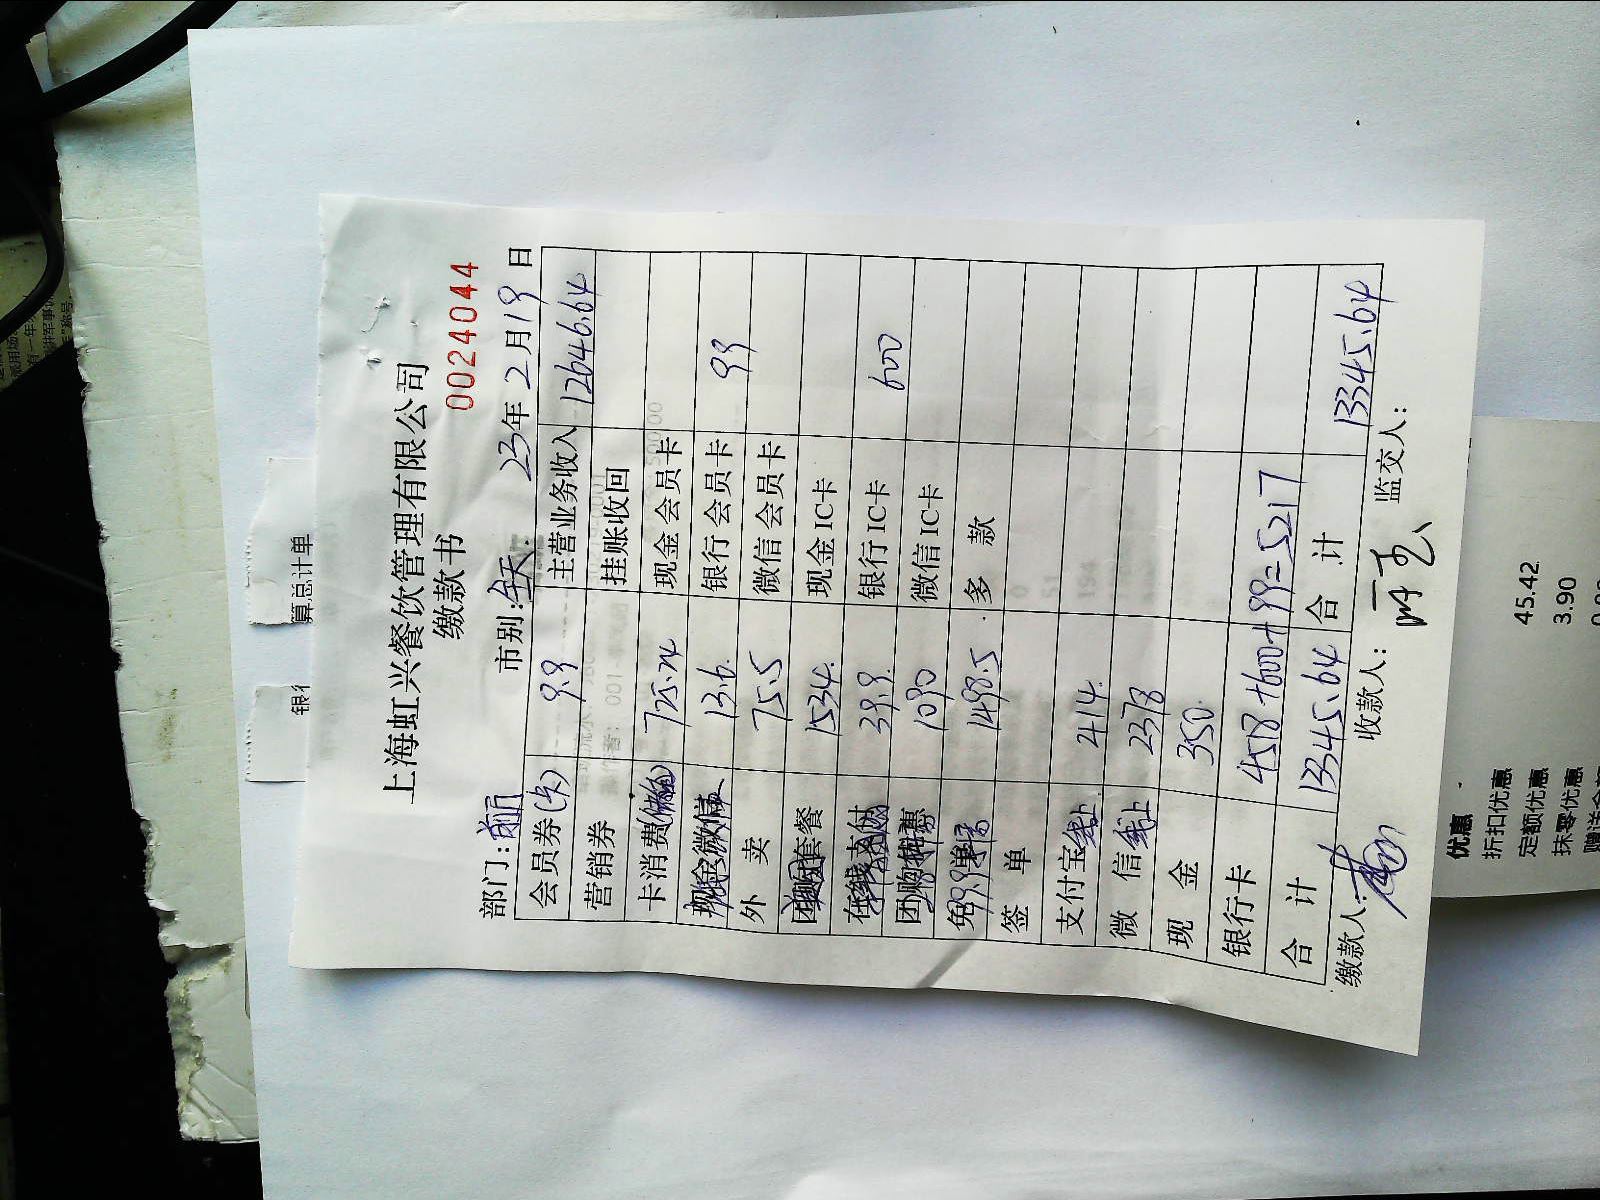 上海虹兴餐饮管理有限公司
缴款书
0024044
部门:前厅 市别:全天 23年2月19日
会员券(卡) 99 主营业务收入 12646.64
营销券 挂账收回
卡消费(储值) 725.74 现金会员卡
13.6 银行会员卡 99
外卖 75.5 微信会员卡
套餐 1534 现金IC卡
39.9 银行IC卡 600
1090 微信IC卡
免 1498.5 多款
签单
支付宝 414
微信 2378
现金 350
银行卡 4518+600+99=5217
合计 13345.64 合计 13345.64
缴款人: 收款人: 监交人:
算总计单
银行
优惠
折扣优惠 45.42
定额优惠 3.90
抹零优惠